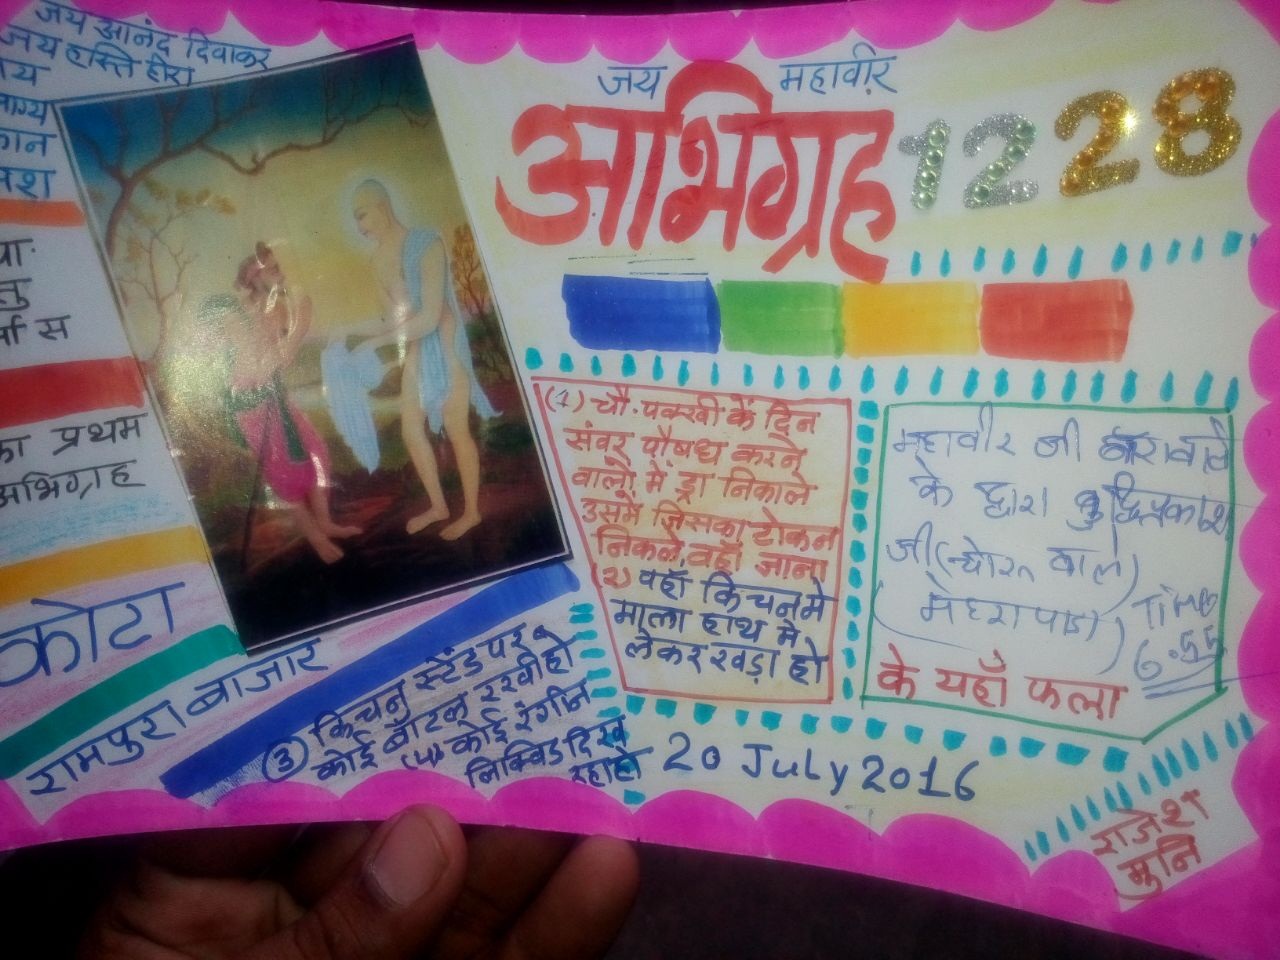 जय आनंद दिवाकर
जय हस्ति हीरा
जय महावीर
अभिग्रह 1228
र्या स
का प्रथम
अभिग्रह
कोटा
रामपुरा बाजार
(1) चौ. पक्खी के दिन
संवर पौषध करने
वालो में ड्रा निकाले
उसमें जिसका टोकन
निकले वहाँ जाना
(२) वहाँ किचन मे
माला हाथ मे
लेकर खड़ा हो
③ किचन स्टेंड पर
कोई बाटल रखी हो
(4) कोई रंगीन
लिक्विड दिख
रहा हो
महावीर जी वाले
के द्वारा बुद्धिप्रकाश
जी
Time
6.55
के यहाँ फला
20 July 2016
राजेश
मुनि